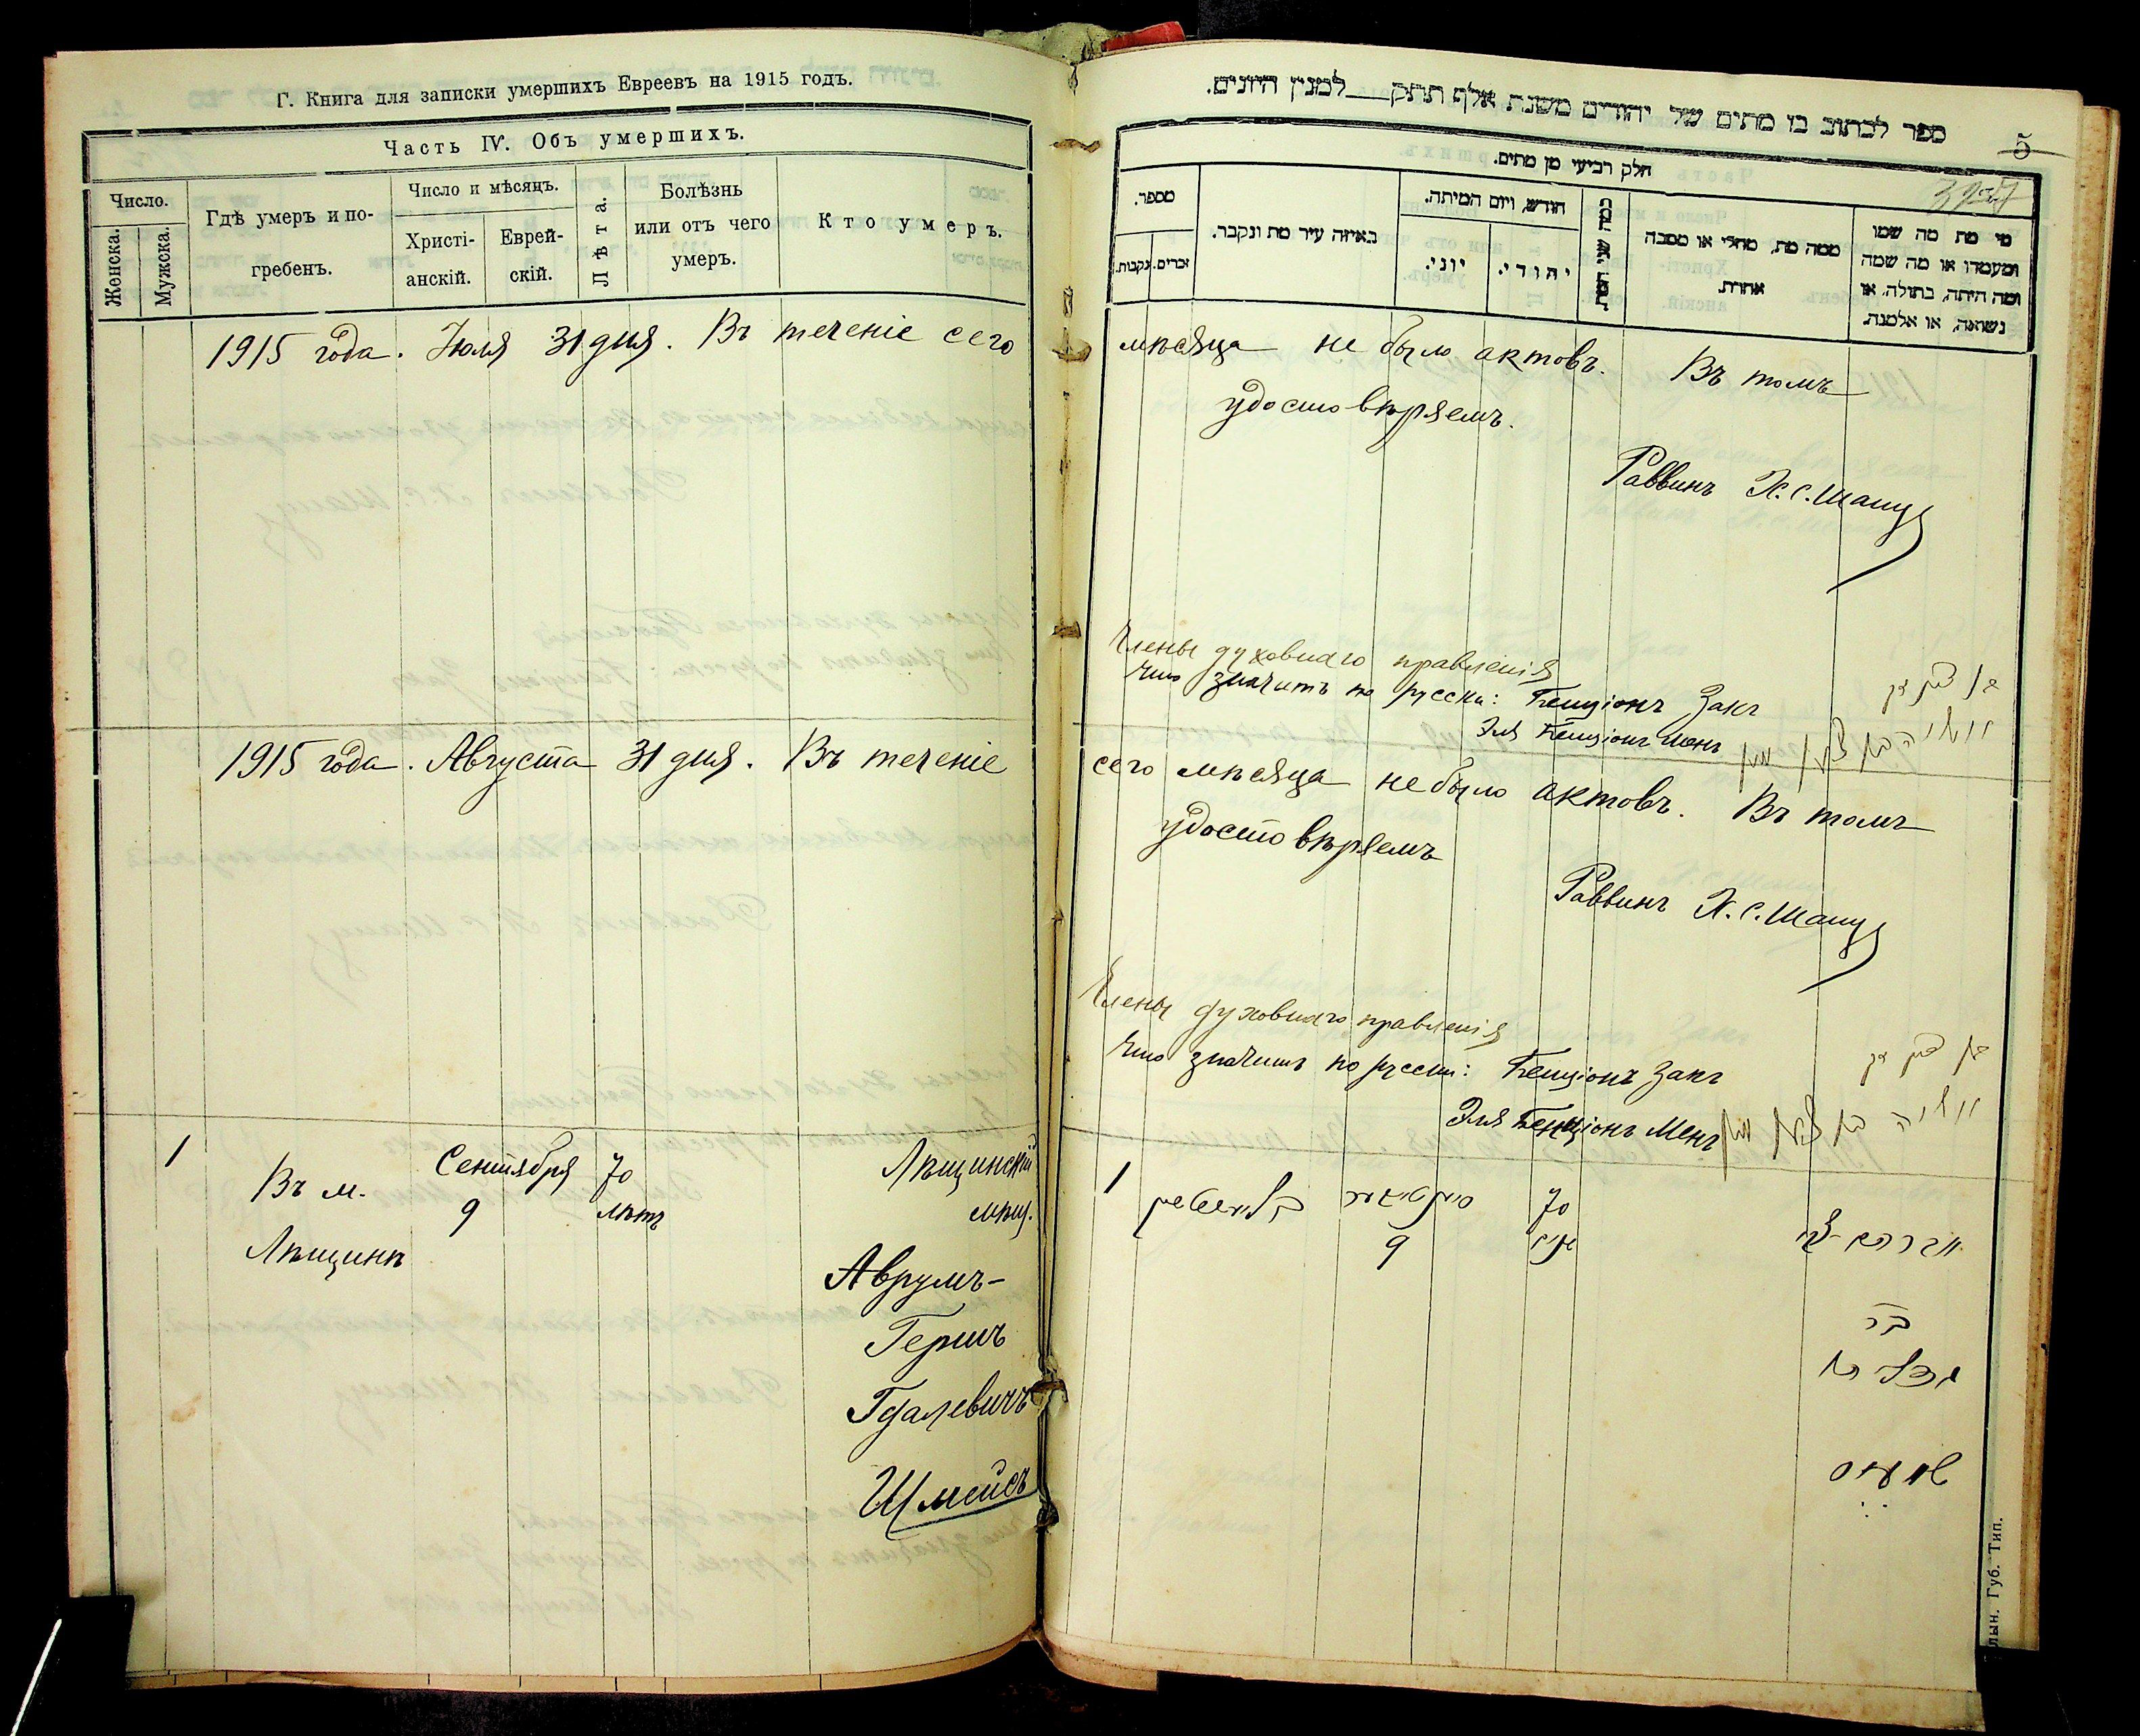 Г. Книга для записки умершихъ Евреевъ на 1915 годъ.
Часть IV. Объ умершихъ.
Число.
Женска.
Мужска.
Гдѣ умеръ и по-
гребенъ.
Число и мѣсяцъ.
Христі-
анскій.
Еврей-
скій.
Лѣта.
Болѣзнь
или отъ чего
умеръ.
Кто умеръ.
1915 года. Июля 31 дня. Въ теченіе сего
1915 года. Августа 31 дня. Въ теченіе
1
Въ м.
Лѣщинѣ
Сентября
9
70
лѣтъ
Лѣщинскій
мѣщ.
Аврумъ-
Гершъ
Гдалевичъ
Шмейсъ
ספר לכתוב בו מתים של יהודים משנת אלף תתק למנין היונים.
5
חלק רביעי מן מתים.
מספר.
זכרים.
נקבות.
באיזה עיר מת ונקבר.
חודש, ויום המיתה.
יוני.
יהודי.
כמה שני המת.
ממה מת, מחלי או מסבה
אחרת.
מי מת מה שמו
ומעמדו או מה שמה
ומה היתה, בתולה, או
נשואה, או אלמנה.
мѣсяца не было актовъ. Въ томъ
удостовѣряемъ.
Раввинъ Х. С. Шапиз
Члены духовнаго правленія
Что значитъ по русски: Бенціонъ Закъ
Эля Бенціонъ Менъ
сего мѣсяца не было актовъ. Въ томъ
удостовѣряемъ
Раввинъ Х. С. Шапиз
Члены духовнаго правленія
Что значитъ по русски: Бенціонъ Закъ
Эля Бенціонъ Менъ
1
9
70
בר
лын. Губ. Тип.